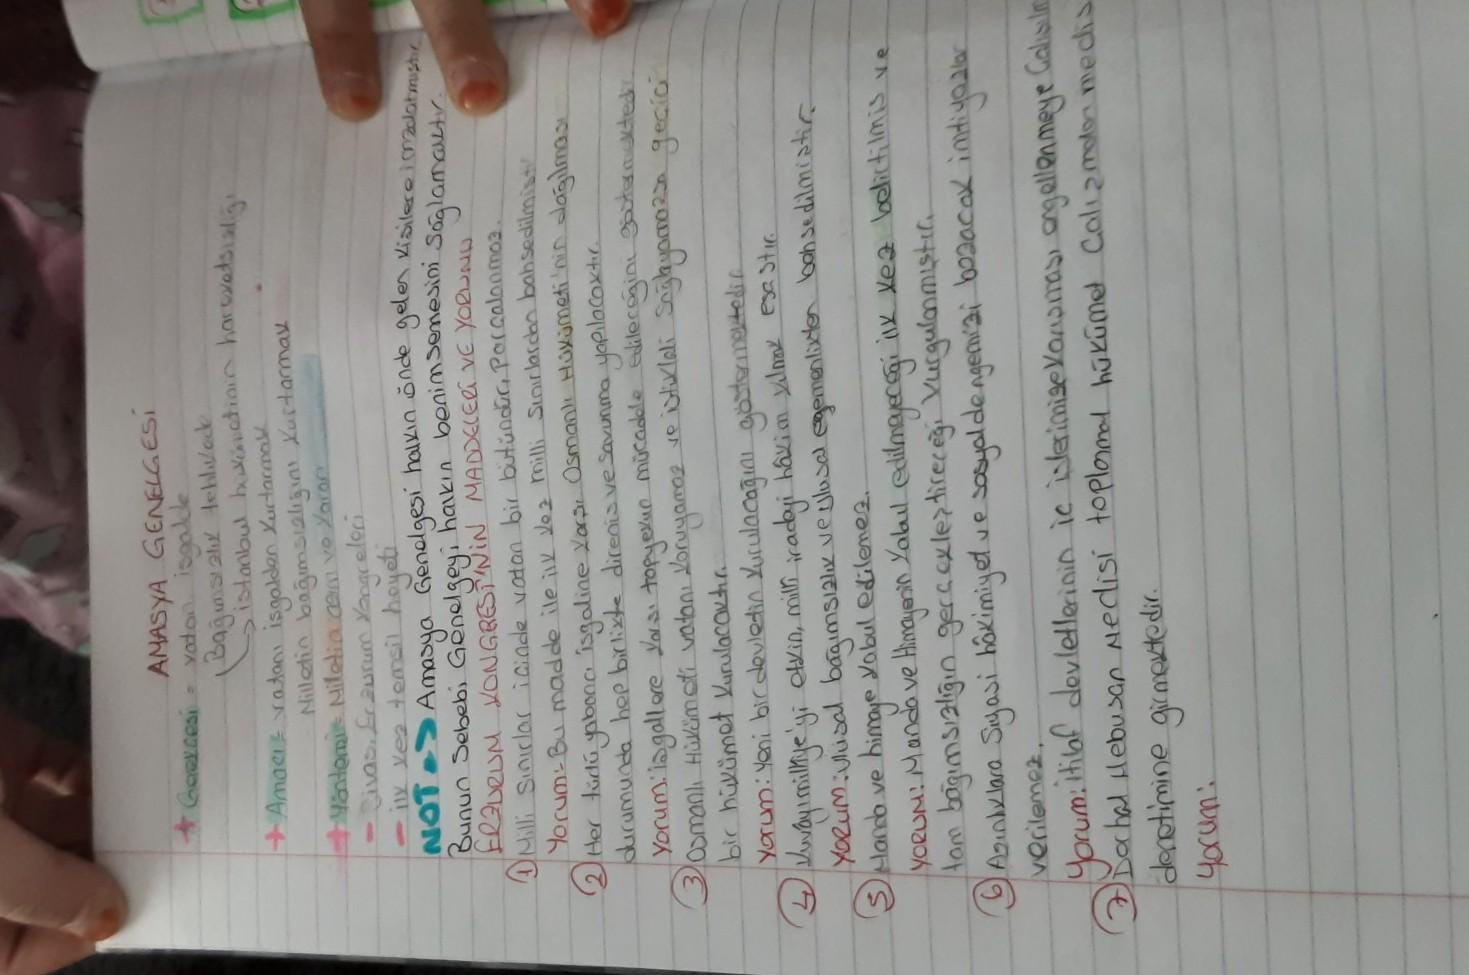 AMASYA GENELGESİ
+ Gerekçesi = vatan işgalde
Bağımsızlık tehlikede
→ istanbul hükümetinin hareketsizliği
+ Amacı = vatanı işgalden kurtarmak
Milletin bağımsızlığını kurtarmak
+ Yöntemi = Milletin azim ve kararı
- Sivas, Erzurum Kongreleri
- ilk kez temsil heyeti
NOT => Amasya Genelgesi halkın önde gelen kişilere imzalatmıştır
Bunun Sebebi Genelgeyi halkın benimsemesini sağlamaktır.
ERZURUM KONGRESİ'NİN MADDELERİ VE YORUMU
① Milli sınırlar içinde vatan bir bütündür, Parçalanmaz.
Yorum:- Bu madde ile ilk kez milli sınırlardan bahsedilmişti
② Her türlü yabancı işgaline karşı Osmanlı Hükümeti'nin dağılması
durumunda hep birlikte direniş ve savunma yapılacaktır.
Yorum: işgallere karşı topyekün mücadele edileceğini göstermektedir
③ Osmanlı Hükümeti vatanı koruyamaz ve istiklali sağlayamazsa geçici
bir hükümet kurulacaktır.
Yorum: Yeni bir devletin kurulacağını göstermektedir
④ Kuvayımilliye'yi etkin, milli iradeyi hâkim kılmak esastır.
Yorum: Ulusal bağımsızlık ve ulusal egemenlikten bahsedilmiştir.
⑤ Manda ve himaye kabul edilemez.
Yorum: Manda ve Himayenin kabul edilmeyeceği ilk kez belirtilmiş ve
tam bağımsızlığın gerçekleştireceği vurgulanmıştır.
⑥ Azınlıklara Siyasi hâkimiyet ve sosyal dengemizi bozacak imtiyazlar
verilemez.
Yorum: itilaf devletlerinin iç işlerimize karışması engellenmeye Çalışılm
⑦ Derhal Mebusan Meclisi toplanmalı hükümet Çalışmaları meclis
denetimine girmektedir.
Yorum: